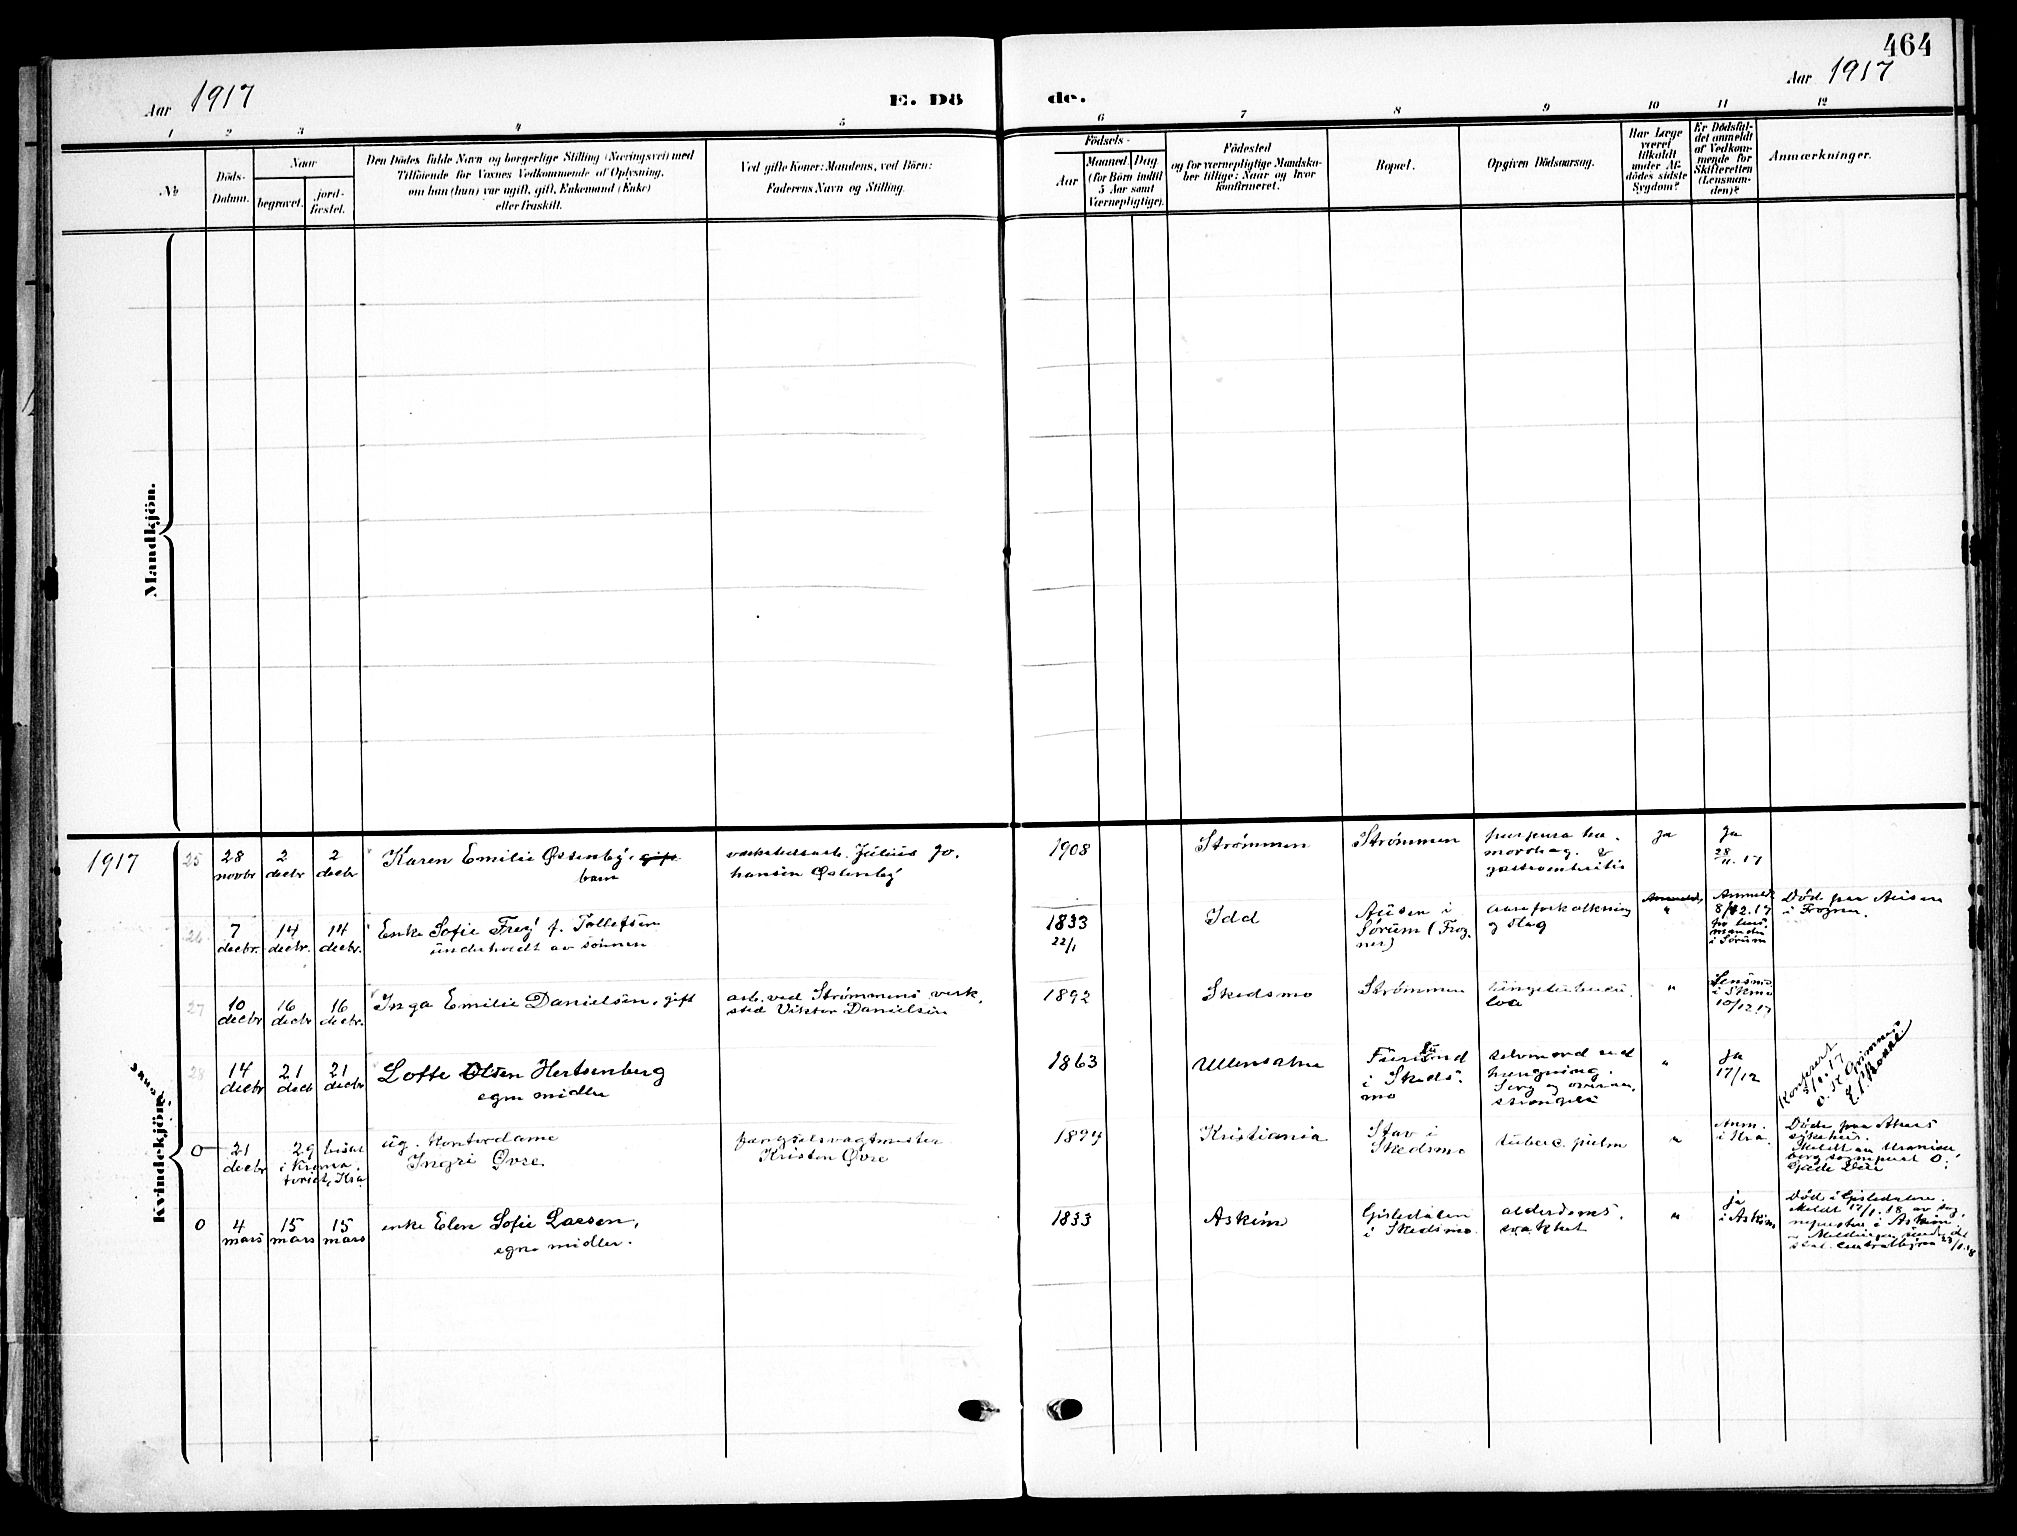 464
Aar 1917
E. Dö
de.
Aar 1917
1 2 3 4 5
6 7 8 9 10 11 12
No
Döds-
Datum.
Naar
begravet.
jord-
fæstet.
Den Dödes fulde Navn og borgerlige Stilling (Næringsvei) med
Tilföiende for Voxnes Vedkommende af Oplysning,
om han (hun) var ugift, gift, Enkemand (Enke)
eller fraskilt.
Ved gifte Koner: Mandens, ved Börn:
Faderens Navn og Stilling.
Födsels-
Aar
Maaned
Dag
(for Börn indtil
5 Aar samt
Værnepligtige).
Födested
og for værnepligtige Mandska-
ber tillige: Naar og hvor
konfirmeret.
Bopæl.
Opgiven Dödsaarsag.
Har Læge
været
tilkaldt
under Af-
dödes sidste
Sygdom?
Er Dödsfal-
det anmeldt
af Vedkom-
mende for
Skifteretten
(Lensman-
den)?
Anmærkninger.
Mandkjön.
Kvindekjön.
1917
25
28
novbr
2
decbr
2
decbr
Karen Emilie Østenby, gift
barn
verkstedsarb. Julius Jo-
hansen Østenby
1908
Strømmen
Strømmen
purpura hæ-
morrhag. &
gastroenteritis
Ja
Ja
28/11.17
26
7
decbr.
14
decbr.
14
decbr.
Enke Sofie Frey f. Tollefsen
underholdt av sönnen
1833
22/1
Idd
Ausen i
Sørum (Frog-
ner)
aareforkalkning
og slag
Anmeldt
8/12.17
for lens-
manden
i Sørum
Död paa Ausen
i Frogner.
27
10
decbr
16
decbr
16
decbr.
Inga Emilie Danielsen, gift
arb. ved Strømmens verk-
sted Viktor Danielsen
1892
Skedsmo
Strømmen
lungetuberku-
lose
"
Lensmd.
i Skmo
10/12 17
28
14
decbr
21
decb
21
decbr
Lotte Olsen Hertsenberg
egne midler
1863
Ullensaker
Furulund
i Skeds-
mo
selvmord ved
hængning.
Sorg og overan-
strengelse
"
Ja
17/12
0
21
decbr
29
i Krema-
toriet, Kra
ug. Kontordame
Ingri Øvre
fængselsvagtmester
Kristen Øvre
1894
Kristiania
Stav i
Skedsmo
tuberc. pulm
"
Anm.
i Kra.
Döde paa Akers
sykehus.
0
4
mars
15
mars
15
mars
enke Elen Sofie Larsen,
egne midler.
1833
Askim
Gisledalen
i Skedsmo
alderdoms-
svakhet
"
ja
i Askim
Död i Gisledalen.
Meldt 17/1.18 av sog-
nepresten i Askim